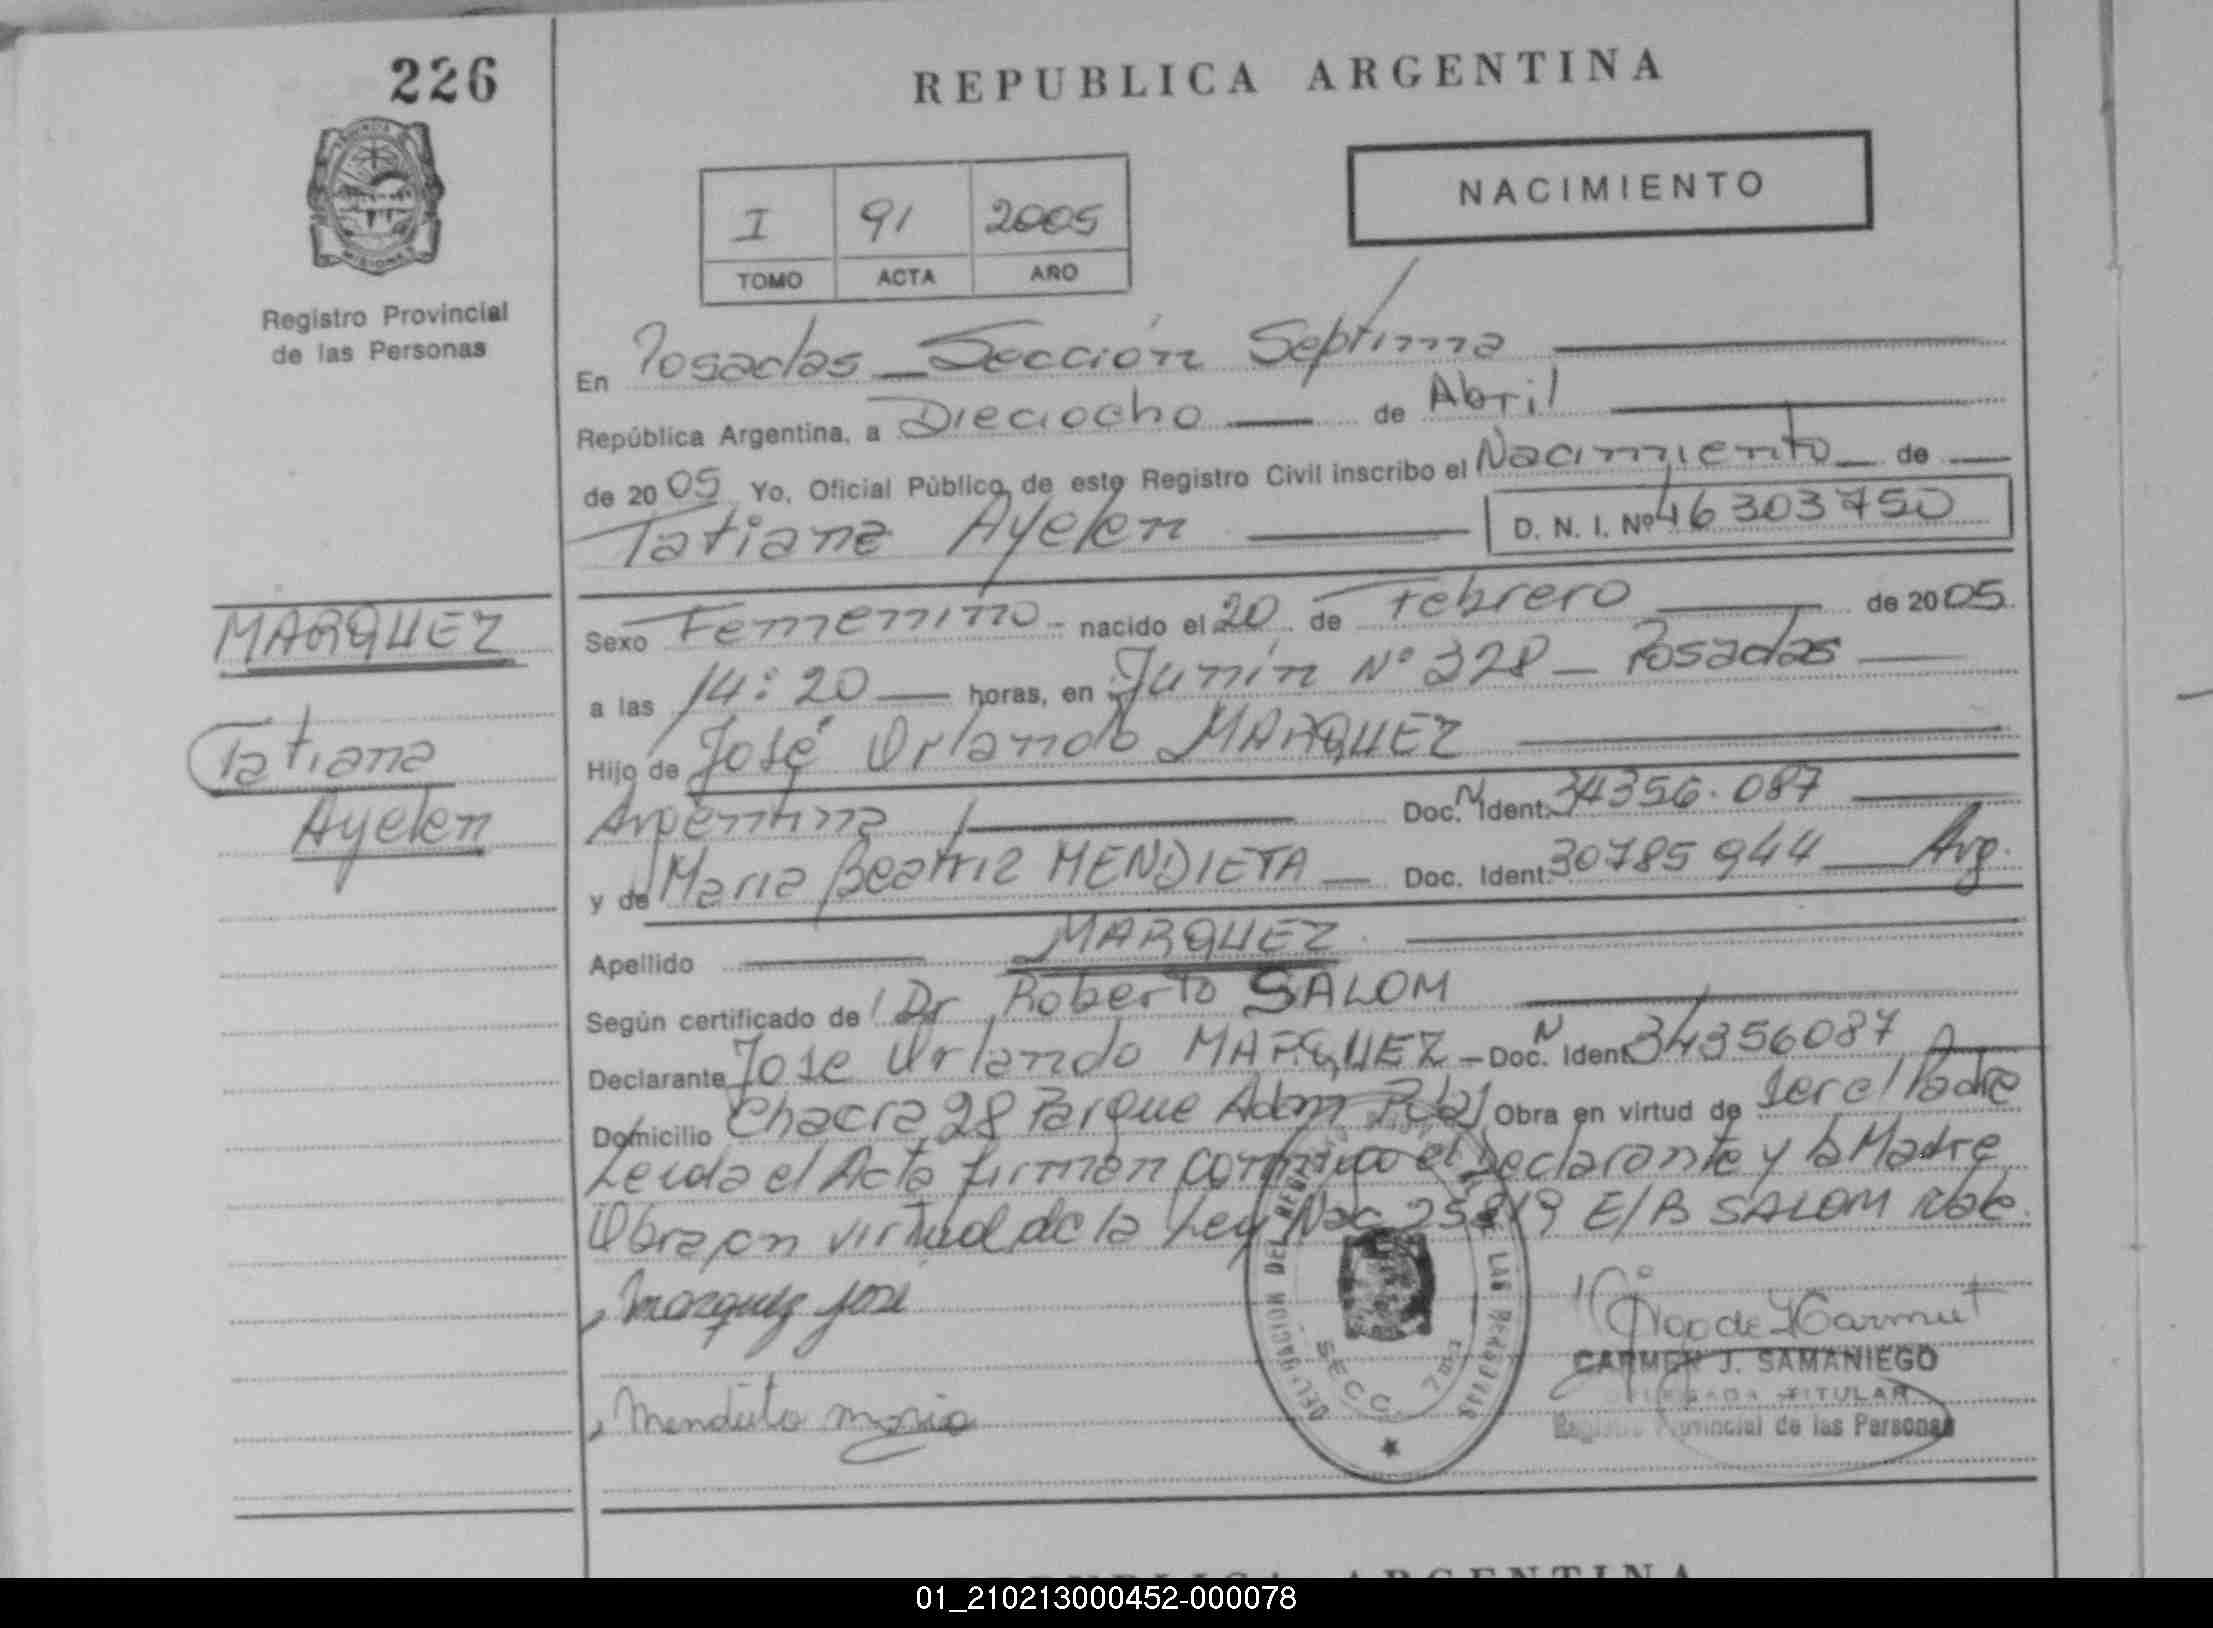 226
REPUBLICA ARGENTINA
NACIMIENTO
I 91 2005
TOMO ACTA AÑO
Registro Provincial
de las Personas
En Posadas - Sección Septima
República Argentina, a Dieciocho de Abril
de 2005 Yo, Oficial Público de este Registro Civil inscribo el Nacimiento de
Tatiana Ayelen D. N. I. Nº 46303750
MARQUEZ
Tatiana
Ayelen
Sexo Femenino - nacido el 20 de Febrero de 2005
a las 14:20 horas, en Junín Nº 328 - Posadas
Hijo de José Orlando MARQUEZ
Argentina Doc. N Ident. 34356.087
y de Maria Beatriz MENDIETA Doc. Ident. 30785944 Arg.
Apellido MARQUEZ
Según certificado de Dr Roberto SALOM
Declarante Jose Orlando MARQUEZ - Doc. N Ident. 34356087
Domicilio Chacra 28 Parque Adam Obra en virtud de ser el Padre
Leida el Acta firman conmigo el Declarante y la Madre
Obra en virtud de la Ley Nac 25819 E/B SALOM
Marquez Jose
Mendieta Maria
SECC. 7ma
CARMEN J. SAMANIEGO
DELEGADA TITULAR
Registro Provincial de las Personas
REPUBLICA ARGENTINA
01_210213000452-000078